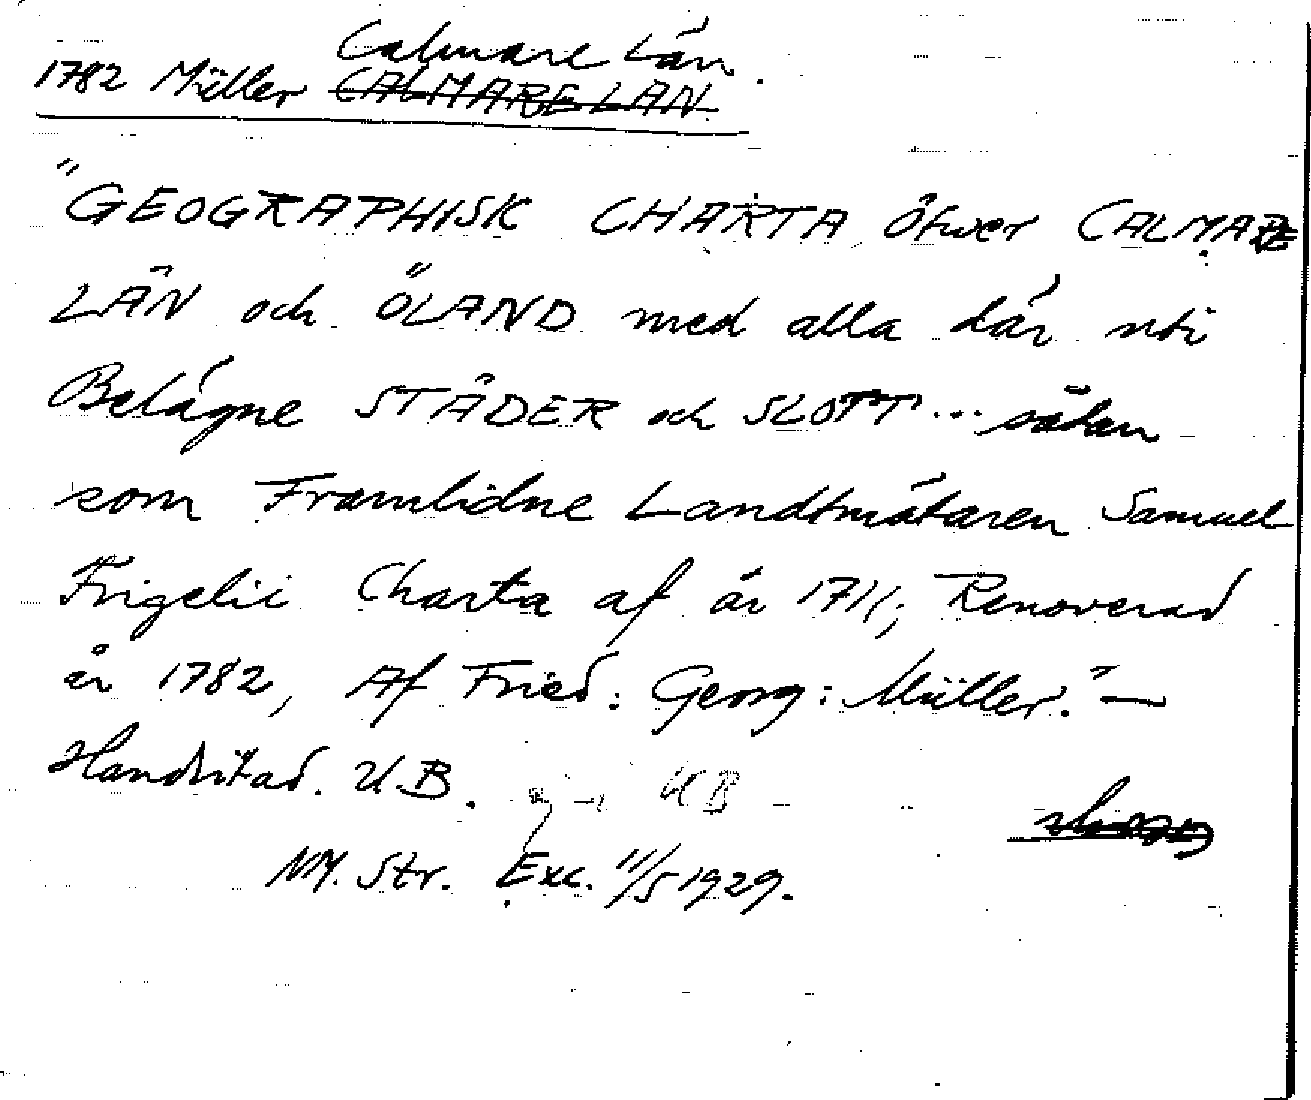 Calmare Län.
1782 Müller CALMARE LÄN
"GEOGRAPHISK CHARTA Öfwer CALMARE
LÄN och ÖLAND med alla där uti
Belägne STÄDER och SLOTT... sådan
som Framlidne Landtmätaren Samuel
Frigelii Charta af år 1711; Renoverad
år 1782, Af Fried: Georg: Müller." —
Handritad. U.B. UB
NM. Str. Exc. 11/5 1929.